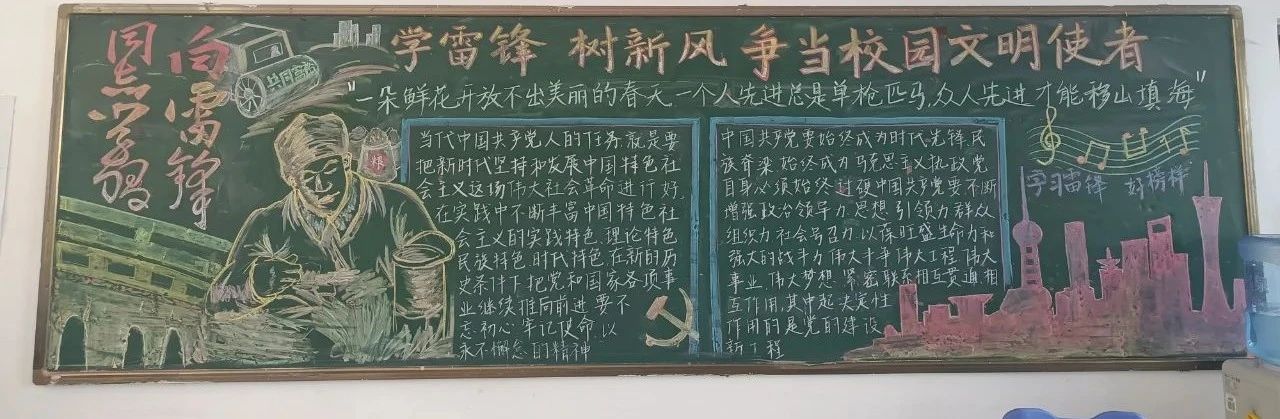 向雷锋
同志学习
共同富裕
学雷锋 树新风 争当校园文明使者
"一朵鲜花开放不出美丽的春天,一个人先进总是单枪匹马,众人先进才能移山填海"
粮
当代中国共产党人的任务,就是要
把新时代坚持和发展中国特色社
会主义这场伟大社会革命进行好,
在实践中不断丰富中国特色社
会主义的实践特色,理论特色
民族特色,时代特色,在新的历
史条件下把党和国家各项事
业继续推向前进,要不
忘初心,牢记使命,以
永不懈怠的精神
中国共产党要始终成为时代先锋,民
族脊梁,始终成为马克思主义执政党
自身必须始终过硬,中国共产党要不断
增强政治领导力,思想引领力,群众
组织力,社会号召力,以葆旺盛生命力和
强大的战斗力,伟大斗争,伟大工程,伟大
事业,伟大梦想,紧密联系,相互贯通,相
互作用,其中起决定性
作用的是党的建设
新工程
学习雷锋 好榜样